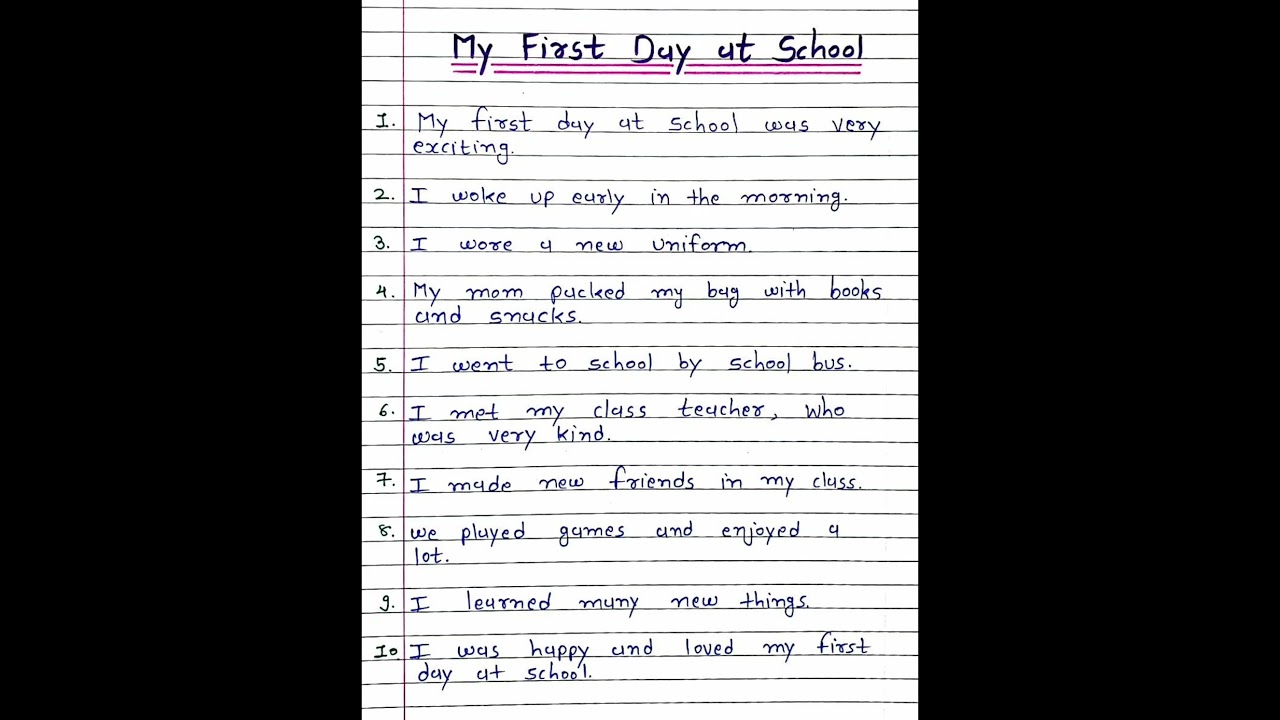 My First Day at School
1. My first day at school was very
exciting.
2. I woke up early in the morning.
3. I wore a new uniform.
4. My mom packed my bag with books
and snacks.
5. I went to school by school bus.
6. I met my class teacher, who
was very kind.
7. I made new friends in my class.
8. we played games and enjoyed a
lot.
9. I learned many new things.
10 I was happy and loved my first
day at school.